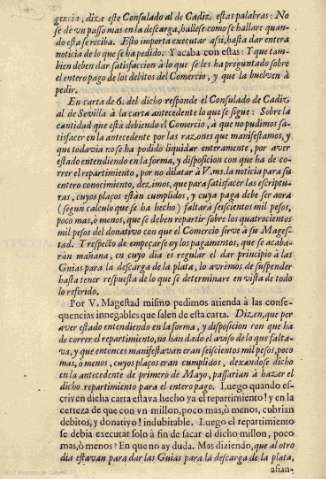 gencia, dize este Consulado al de Cadiz estas palabras: No
se dè vn passo mas en la descarga, hallese como se hallare quan-
do esta se reciba. Esto importa executar assi, hasta dar entera
noticia de lo que se ha pedido. Y acaba con estas: Y que tam-
bien deben dar satisfaccion à lo que se les ha preguntado sobre
el entero pago de los debitos del Comercio, y que la buelven à
pedir.
En carta de 6. del dicho responde el Consulado de Cadiz
al de Sevilla à la carta antecedente lo que se sigue: Sobre la
cantidad que està debiendo el Comercio, à que no pudimos sa-
tisfacer en la antecedente por las razones que manifestamos, y
que todavia no se ha podido liquidar enteramente, por aver
estado entendiendo en la forma, y disposicion con que ha de co-
rrer el repartimiento, por no dilatar à V.ms. la noticia para su
entero conocimiento, dezimos, que para satisfacer las escriptu-
ras, cuyos plaços estàn cumplidos, y cuya paga debe ser aora
(segun calculo que se ha hecho) faltarà seiscientos mil pesos,
poco mas, ò menos, que se deben repartir sobre los quatrocientos
mil pesos del donativo con que el Comercio sirve à su Mages-
tad. Y respecto de empeçarse oy los pagamentos, que se acaba-
ràn mañana, en cuyo dia es regular el dar principio à las
Guias para la descarga de la plata, lo avremos de suspender
hasta tener respuesta de lo que se determinare en vista de todo
lo referido.
Por V. Magestad mismo pedimos atienda à las conse-
quencias innegables que salen de esta carta. Dizen, que por
aver estado entendiendo en la forma, y disposicion con que ha
de correr el repartimiento, no han dado el aviso de lo que falta-
va, y que entonces manifestavan eran seiscientos mil pesos, poco
mas, ò menos, cuyos plaços eran cumplidos, dexandose dicho
en la antecedente de primero de Mayo, passarian à hazer el
dicho repartimiento para el entero pago. Luego quando es-
criven dicha carta estava hecho ya el repartimiento? y en la
certeza de que con vn millon, poco mas, ò menos, cubrian
debitos, y donativo? indubitable. Luego el repartimiento
se debia executar solo à fin de sacar el dicho millon, poco
mas, ò menos? En que no ay duda. Mas diziendo, que al otro
dia estavan para dar las Guias para la descarga de la plata,
assan-